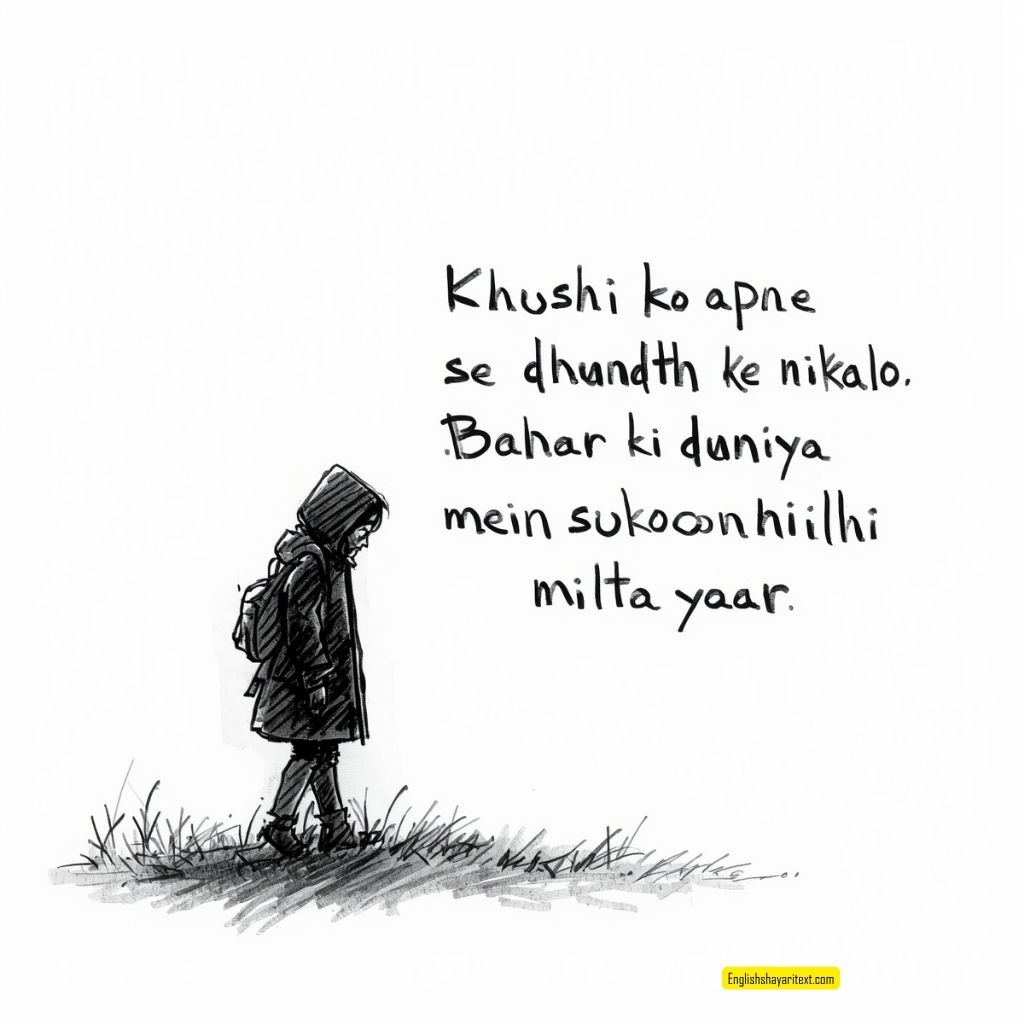 Khushi ko apne
se dhundth ke nikalo.
Bahar ki duniya
mein sukooon hiilhi
milta yaar.
Englishshayaritext.com